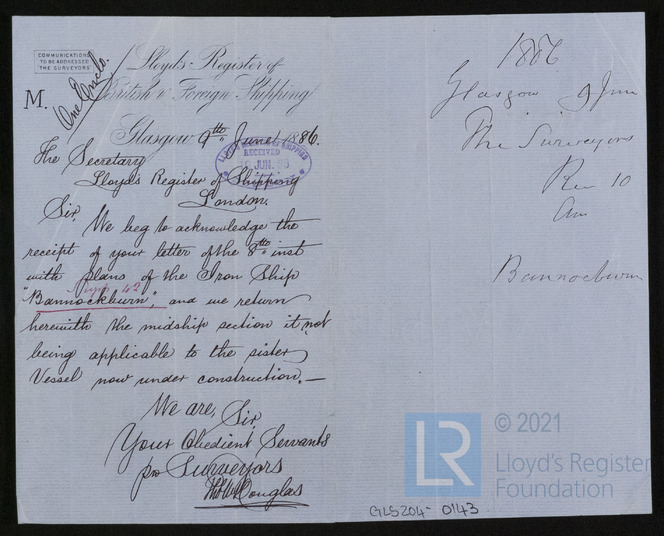 COMMUNICATIONS
TO BE ADDRESSED
THE SURVEYORS
One Enclo.
Lloyd's Register of
British & Foreign Shipping
M.
Glasgow 9th June 1886.
RECEIVED
JUN. 86
The Secretary
Lloyd's Register of Shipping
London.
Sir,
We beg to acknowledge the
receipt of your letter of the 8th inst
with plans of the Iron Ship
42
"Bannockburn", and we return
herewith the midship section it not
being applicable to the sister
Vessel now under construction.—
We are, Sir,
Your Obedient Servants
pro Surveyors
Douglas
1886
Glasgow 9 June
The Surveyors
Rec 10
Bannockburn
LR
© 2021
Lloyd's Register
Foundation
GLS204-0143